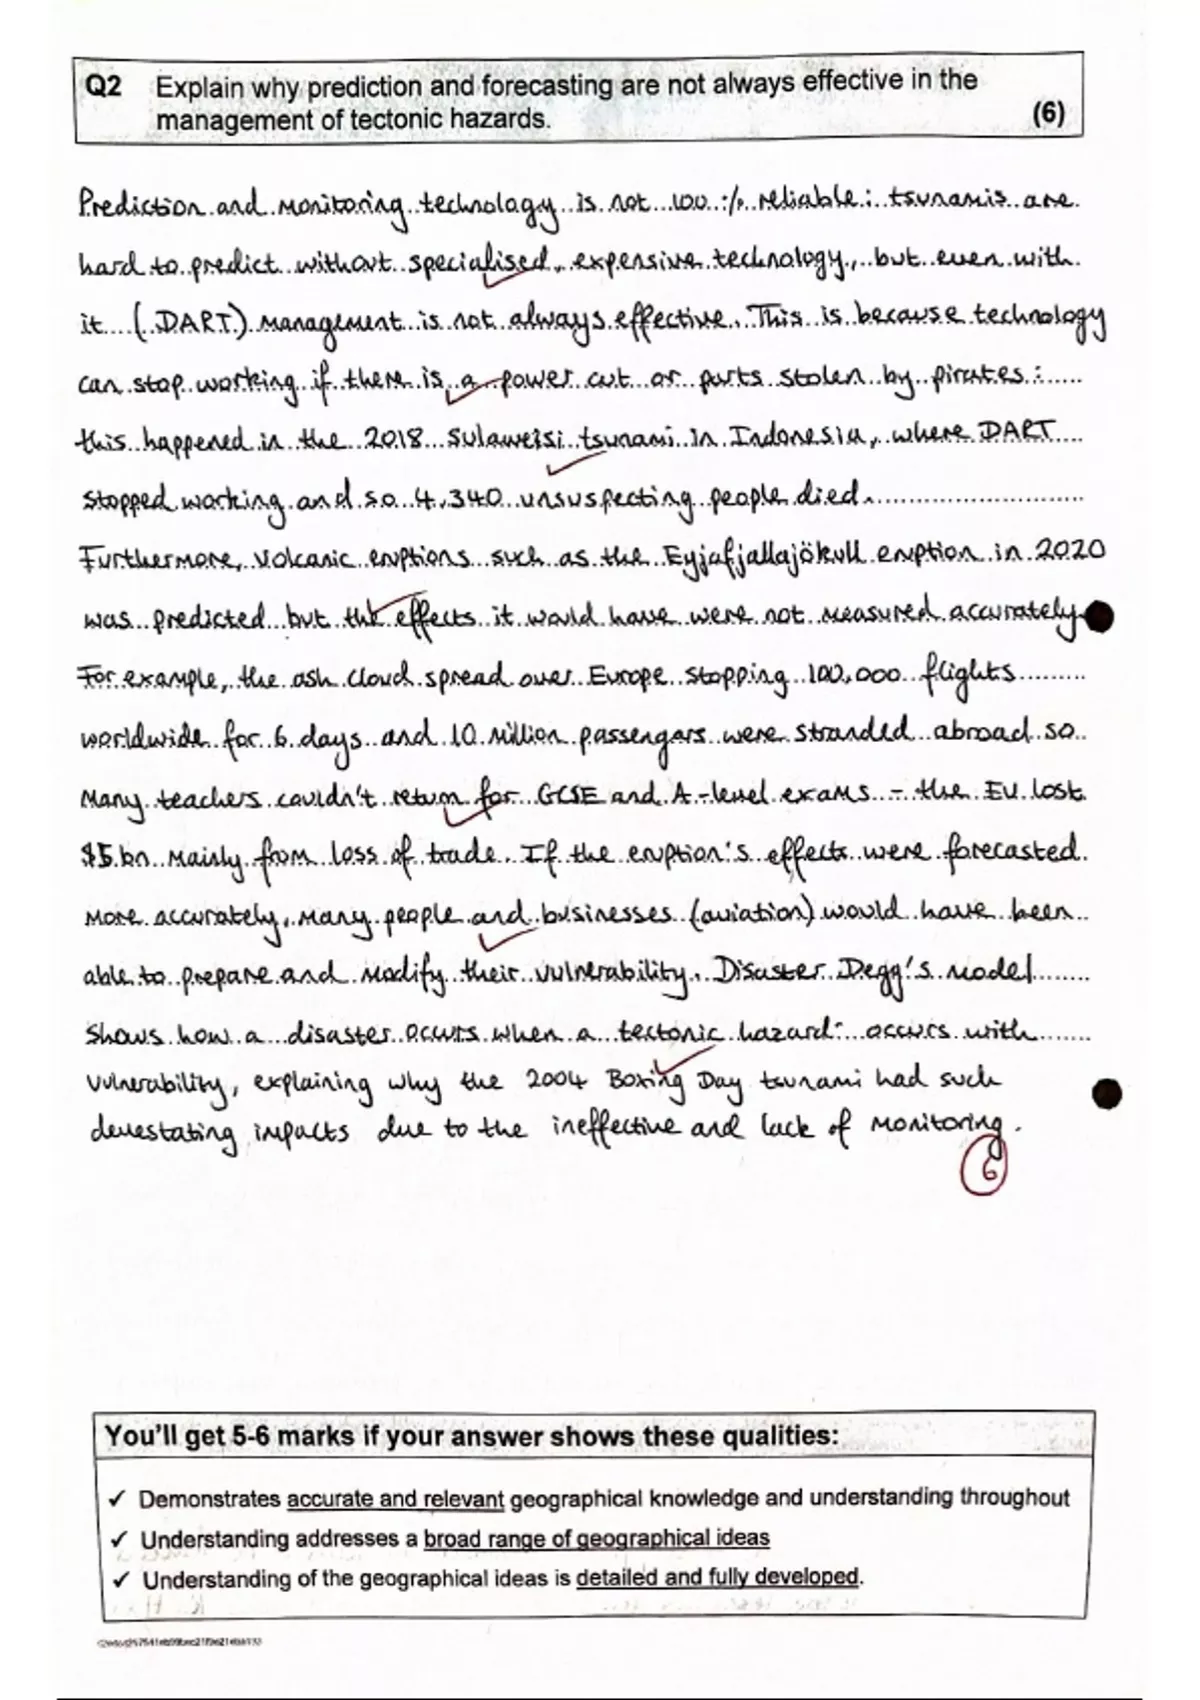 Q2 Explain why prediction and forecasting are not always effective in the
management of tectonic hazards. (6)
Prediction and monitoring technology is not 100% reliable: tsunamis are
hard to predict without specialised, expensive technology, but even with
it (DART) management is not always effective. This is because technology
can stop working if there is a power cut or parts stolen by pirates:
this happened in the 2018 Sulaweisi tsunami in Indonesia, where DART
stopped working and so 4,340 unsuspecting people died.
Furthermore, volcanic eruptions such as the Eyjafjallajökull eruption in 2020
was predicted but the effects it would have were not measured accurately.
For example, the ash cloud spread over Europe stopping 100,000 flights
worldwide for 6 days and 10 million passengers were stranded abroad so
many teachers couldn't return for GCSE and A-level exams - the EU lost
$5bn mainly from loss of trade. If the eruption's effects were forecasted
more accurately, many people and businesses (aviation) would have been
able to prepare and modify their vulnerability. Disaster Degg's model
shows how a disaster occurs when a tectonic hazard occurs with
vulnerability, explaining why the 2004 Boxing Day tsunami had such
devestating impacts due to the ineffective and lack of monitoring.
6
You'll get 5-6 marks if your answer shows these qualities:
✓ Demonstrates accurate and relevant geographical knowledge and understanding throughout
✓ Understanding addresses a broad range of geographical ideas
✓ Understanding of the geographical ideas is detailed and fully developed.